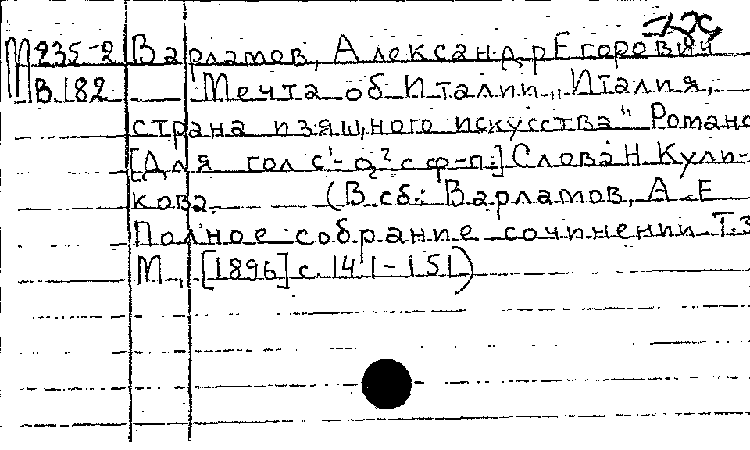 М 235-2 Варламов, Александр Егорович
В.182 Мечта об Италии „Италия,
страна изящного искусства" Романс
[Для гол с¹-a² с ф-п.] Слова Н. Кули-
кова. (В сб.: Варламов, А. Е
Полное собрание сочинении. Т.3
М., [1896] с. 141-151)